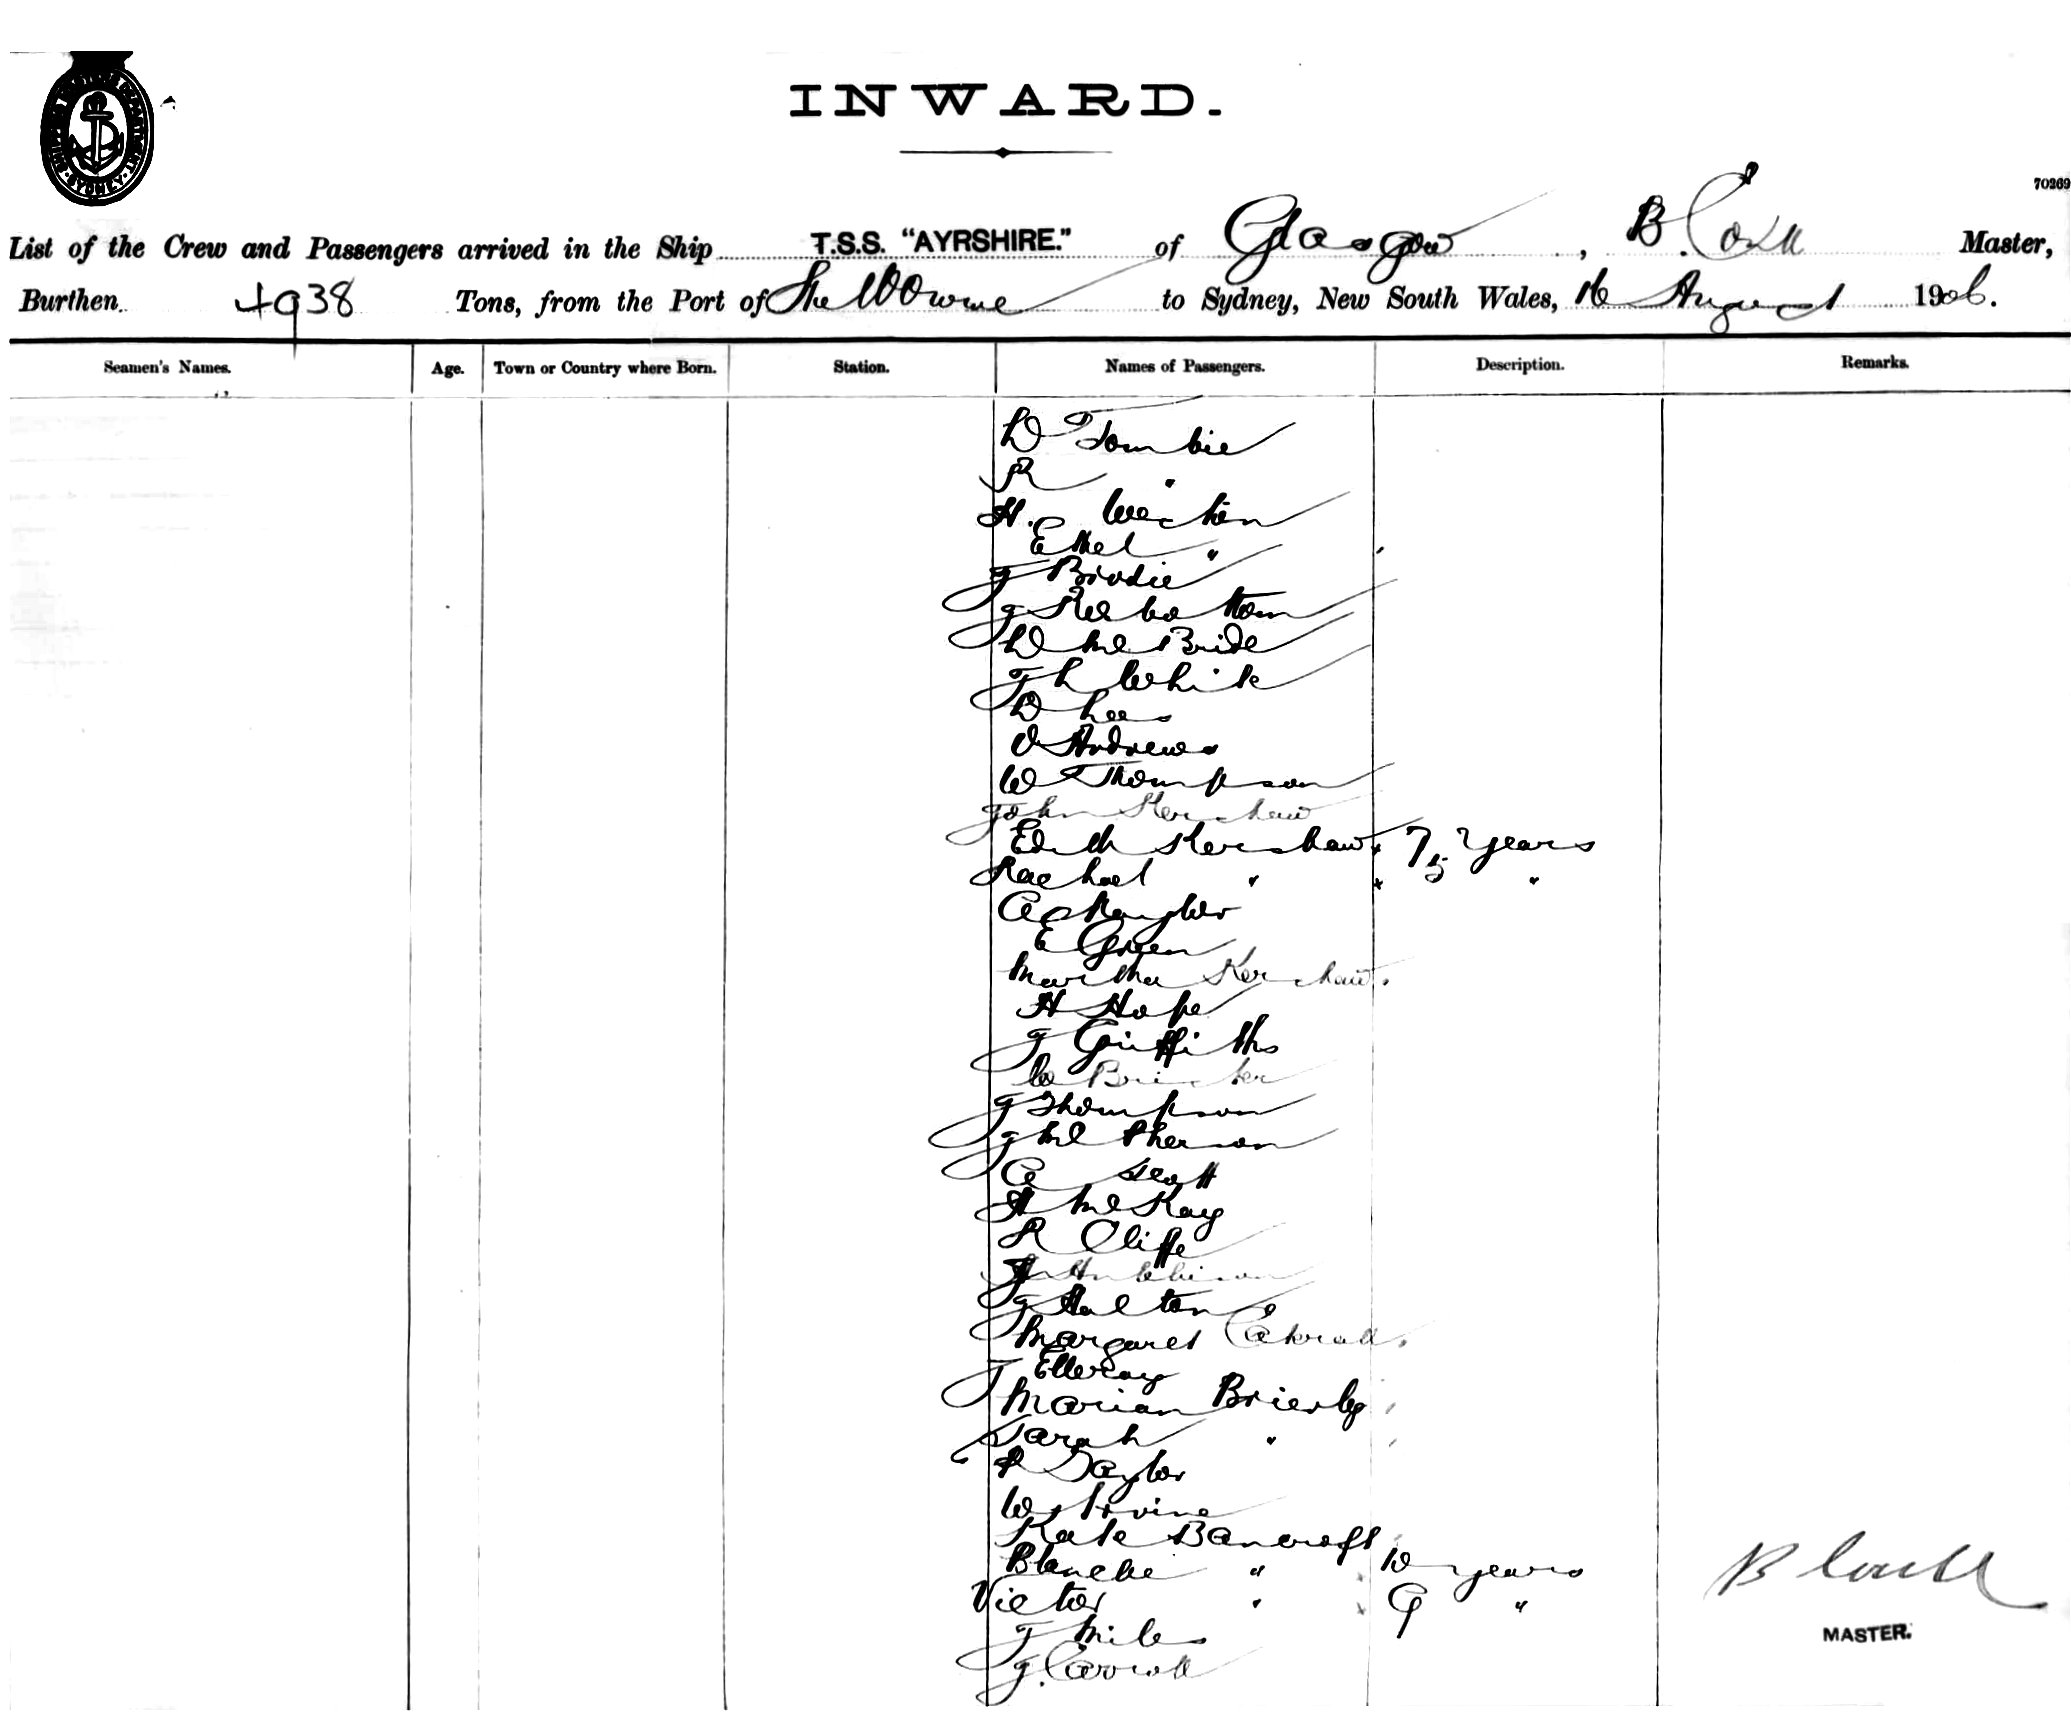 SHIPPING MASTERS DEPARTMENT SYDNEY
INWARD.
70269
List of the Crew and Passengers arrived in the Ship T.S.S. "AYRSHIRE." of Glasgow, B. Master,
Burthen 4938 Tons, from the Port of Melbourne to Sydney, New South Wales, 16 August 1906.
Seamen's Names. Age. Town or Country where Born. Station. Names of Passengers. Description. Remarks.
D Tombie
R "
H. Weston
Ethel "
J Brodie
J
D McBride
J L White
D Lees
O Andrews
W Thompson
John Kershaw
Edith Kershaw 7 years
Rachael " 5 "
A
E Green
Martha Kershaw
H Hope
J Griffiths
W
J Thompson
J McPherson
A Scott
A McKay
R Cliffe
Hutchinson
J Halton
Margaret
J Elleray
Marian Brierly
Sarah "
P Taylor
W Irvine
Kate Bancroft
Blanche " 10 years
Victor " 9 "
J Miles
J. Carroll
B
MASTER.